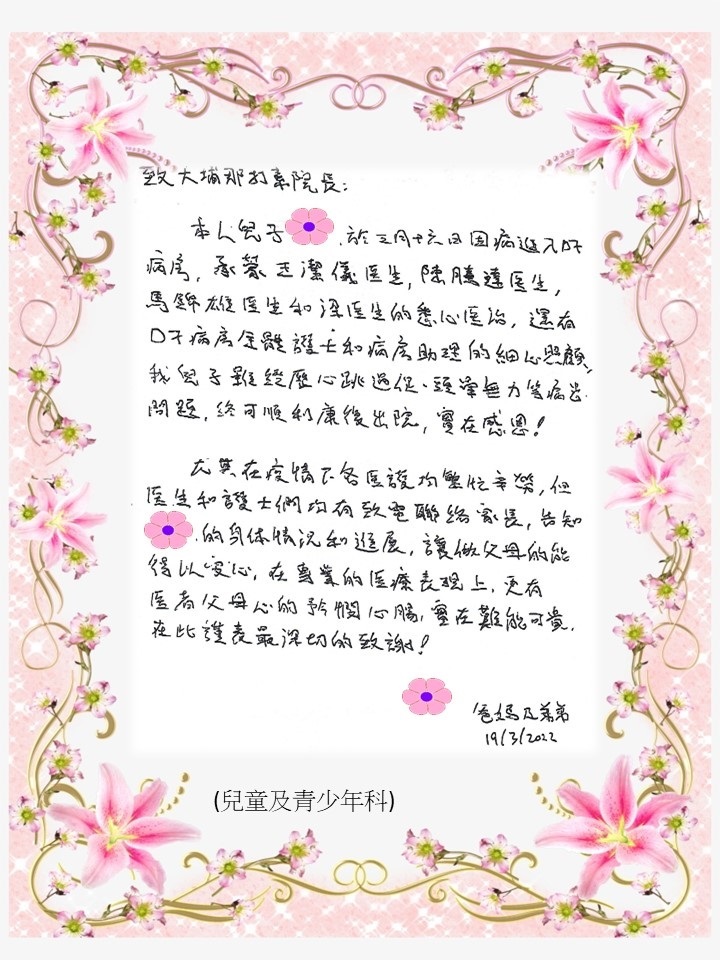 致大埔那打素院長:
本人兒子 於三月十六日因病進入D7
病房, 承蒙王潔儀医生, 陳騰達医生,
馬錦雄医生和梁医生的悉心医治, 還有
D7病房全體護士和病房助理的細心照顧,
我兒子雖經歷心跳過促、頭暈無力等病
問題, 終可順利康復出院, 實在感恩!
尤其在疫情下各医護均繁忙辛勞, 但
医生和護士們均有致電聯絡家長, 告知
的身体情況和進展, 讓做父母的能
得以安心, 在專業的医療表現上, 更有
医者父母心的矜憫心腸, 實在難能可貴.
在此謹表最深切的致謝!
爸媽及弟弟
19/3/2022
(兒童及青少年科)